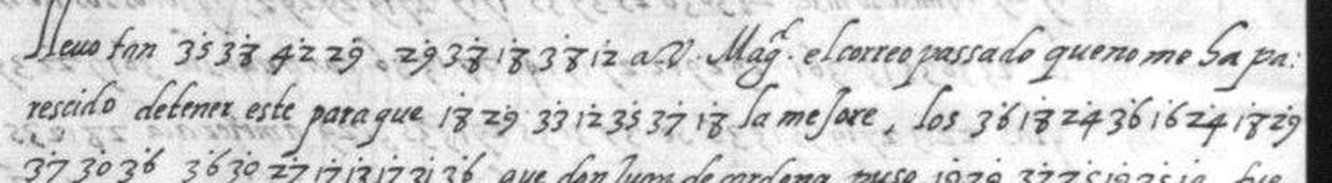 lleuo tan 35 38 42 29 29 38 18 38 12 a V. Mag.d el correo passado que no me ha pa:
rescido detener este para que 18 29 33 12 35 37 18 la mejore, los 36 18 24 36 16 24 18 29
37 30 36 36 30 27 17 13 17 31 36 que don Juan de cardona puso